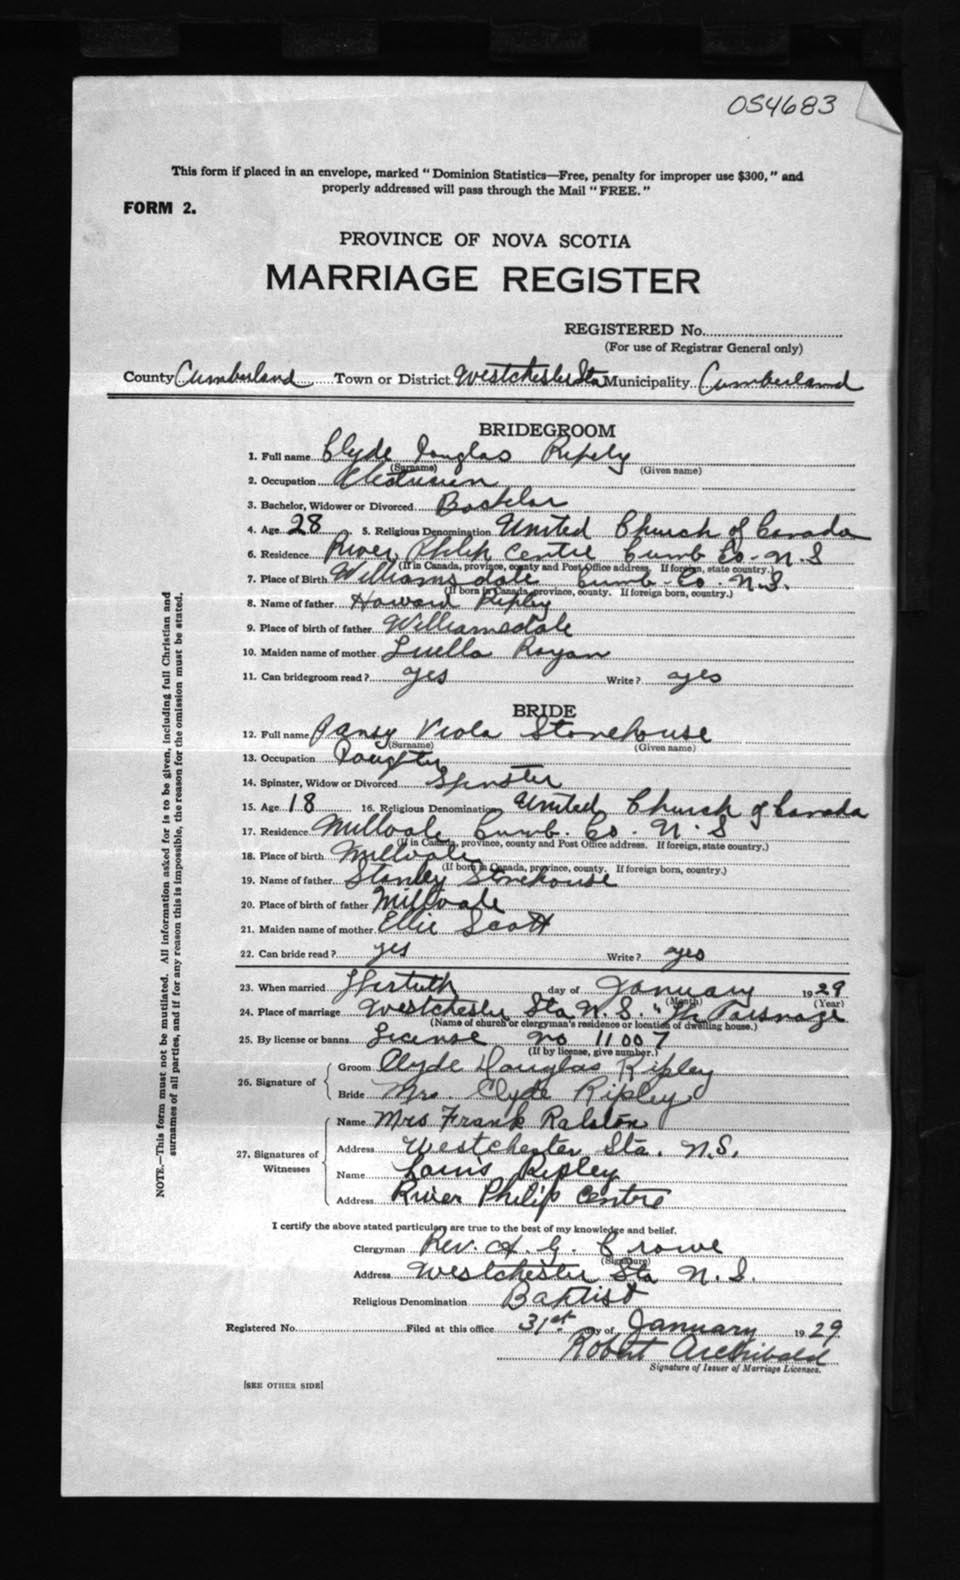 OS4683
This form if placed in an envelope, marked "Dominion Statistics—Free, penalty for improper use $300," and
properly addressed will pass through the Mail "FREE."
FORM 2.
PROVINCE OF NOVA SCOTIA
MARRIAGE REGISTER
REGISTERED No.
(For use of Registrar General only)
County Cumberland Town or District Westchester Sta Municipality Cumberland
BRIDEGROOM
1. Full name Clyde Douglas Ripely
(Surname) (Given name)
2. Occupation
3. Bachelor, Widower or Divorced Bachelor
4. Age 28 5. Religious Denomination United Church of Canada
6. Residence River Philip Centre Cumb Co. N.S
(If in Canada, province, county and Post Office address. If foreign, state country.)
7. Place of Birth Williamsdale Cumb. Co. N.S.
(If born in Canada, province, county. If foreign born, country.)
8. Name of father Howard Ripley
9. Place of birth of father Williamsdale
10. Maiden name of mother Luella Royan
11. Can bridegroom read? yes Write? yes
BRIDE
12. Full name Pansy Viola Stonehouse
(Surname) (Given name)
13. Occupation Daughter
14. Spinster, Widow or Divorced Spinster
15. Age 18 16. Religious Denomination United Church of Canada
17. Residence Millvale Cumb. Co. N.S
(If in Canada, province, county and Post Office address. If foreign, state country.)
18. Place of birth Millvale
(If born in Canada, province, county. If foreign born, country.)
19. Name of father Stanley Stonehouse
20. Place of birth of father Millvale
21. Maiden name of mother Ellie Scott
22. Can bride read? yes Write? yes
23. When married day of January 1929
(Month) (Year)
24. Place of marriage Westchester Sta N.S. "The Parsnage
(Name of church or clergyman's residence or location of dwelling house.)
25. By license or banns License no 11007
(If by license, give number.)
26. Signature of Groom Clyde Douglas Ripley
Bride Mrs. Clyde Ripley
27. Signatures of Witnesses Name Mrs Frank Ralston
Address Westchester Sta. N.S.
Name Louis Ripley
Address River Philip Centre
I certify the above stated particulars are true to the best of my knowledge and belief.
Clergyman Rev. A. G. Crowe
(Signature)
Address Westchester Sta N.S.
Religious Denomination Baptist
Registered No. Filed at this office 31st day of January 1929
Robert Archibald
Signature of Issuer of Marriage Licenses.
[SEE OTHER SIDE]
NOTE.—This form must not be mutilated. All information asked for is to be given, including full Christian and
surnames of all parties, and if for any reason this is impossible, the reason for the omission must be stated.